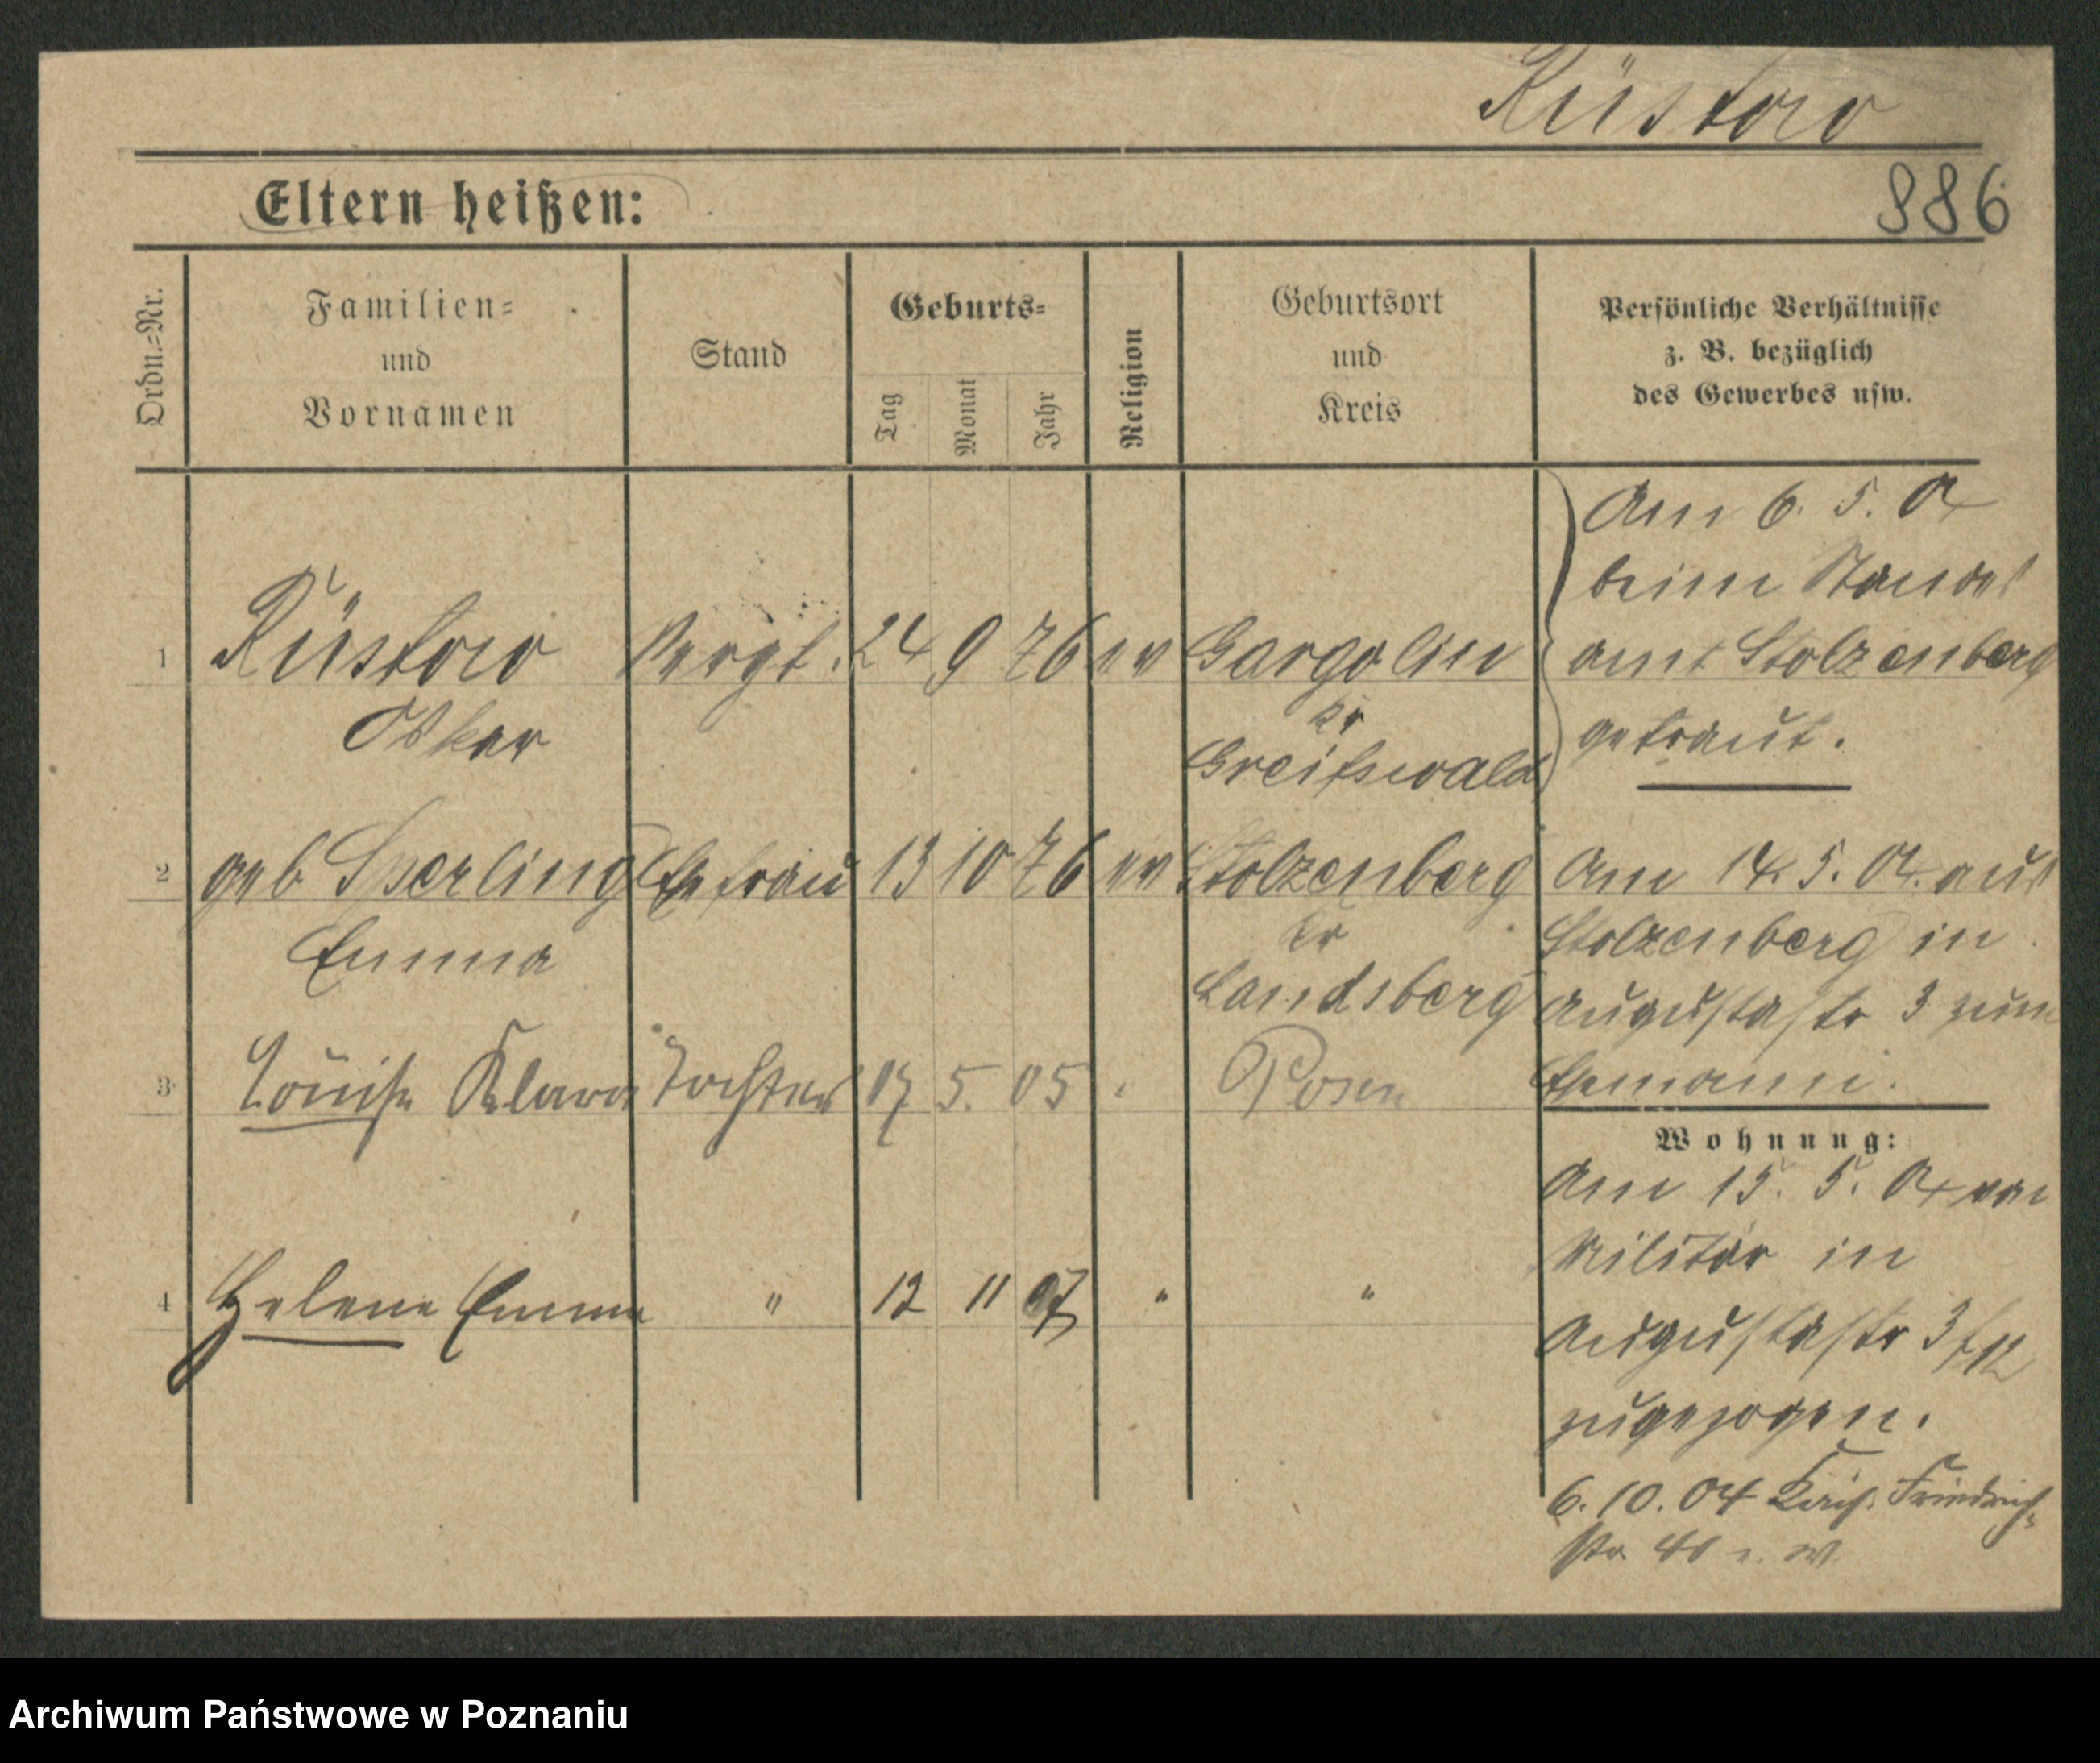 Rüstow
886
Eltern heißen:
Ordn.-Nr.
Familien-
und
Vornamen
Stand
Geburts-
Tag
Monat
Jahr
Religion
Geburtsort
und
Kreis
Persönliche Verhältnisse
z. B. bezüglich
des Gewerbes usw.
1 Rüstow 24 9 76 ev Gargolin
Oskar
Kr
Greifswald
Am 6. 5. 04
beim Standes
amt Stolzenberg
getraut.
2 geb Sperling Ehefrau 13 10 76 ev Stolzenberg
Emma
Kr
Landsberg
Am 14. 5. 04. aus
Stolzenberg in
Augustastr 3 zum
Ehemann.
3 Louise Klara Tochter 17 5. 05 Posen
Wohnung:
Am 15. 5. 04 vom
Militär in
Augustastr 3
zugezogen.
4 Helene Emma " 12 11 07 " "
6. 10. 04 Friedrich-
str 40
Archiwum Państwowe w Poznaniu